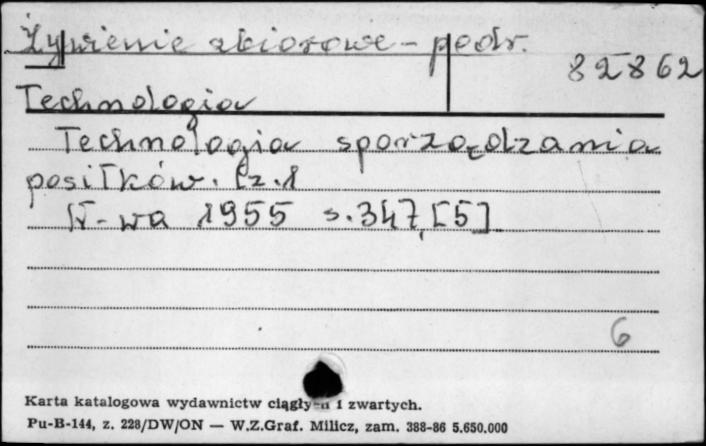 Żywienie zbiorowe - podr.
82862
Technologia
Technologia sporządzania
posiłków. Cz. 1
W-wa 1955 s. 347, [5]
6
Karta katalogowa wydawnictw ciągłych i zwartych.
Pu-B-144, z. 228/DW/ON — W.Z.Graf. Milicz, zam. 388-86 5.650.000